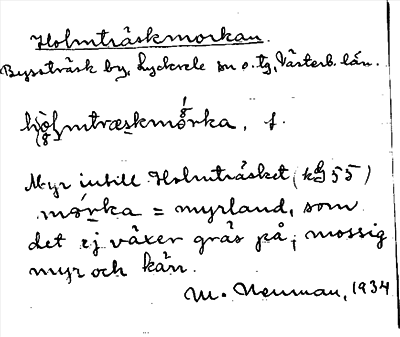 Holmträskmorkan.
Byssträsk by, Lycksele sn o. tg, Västerb. län.
hòlmtræskmórka, f.
Myr intill Holmträsket (kbl 55)
mórka = myrland, som
det ej växer gräs på; mossig
myr och kärr.
M. Neuman, 1934